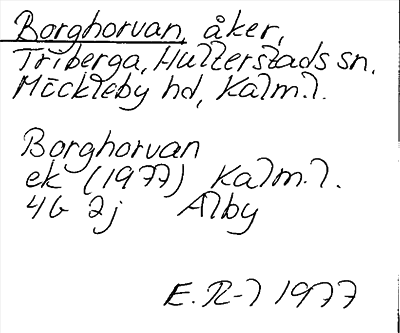 Borghorvan, åker,
Triberga, Hulterstads sn,
Möckleby hd, Kalm. l.
Borghorvan
ek (1977) Kalm. l.
4G 2j Alby
E. R-l 1977